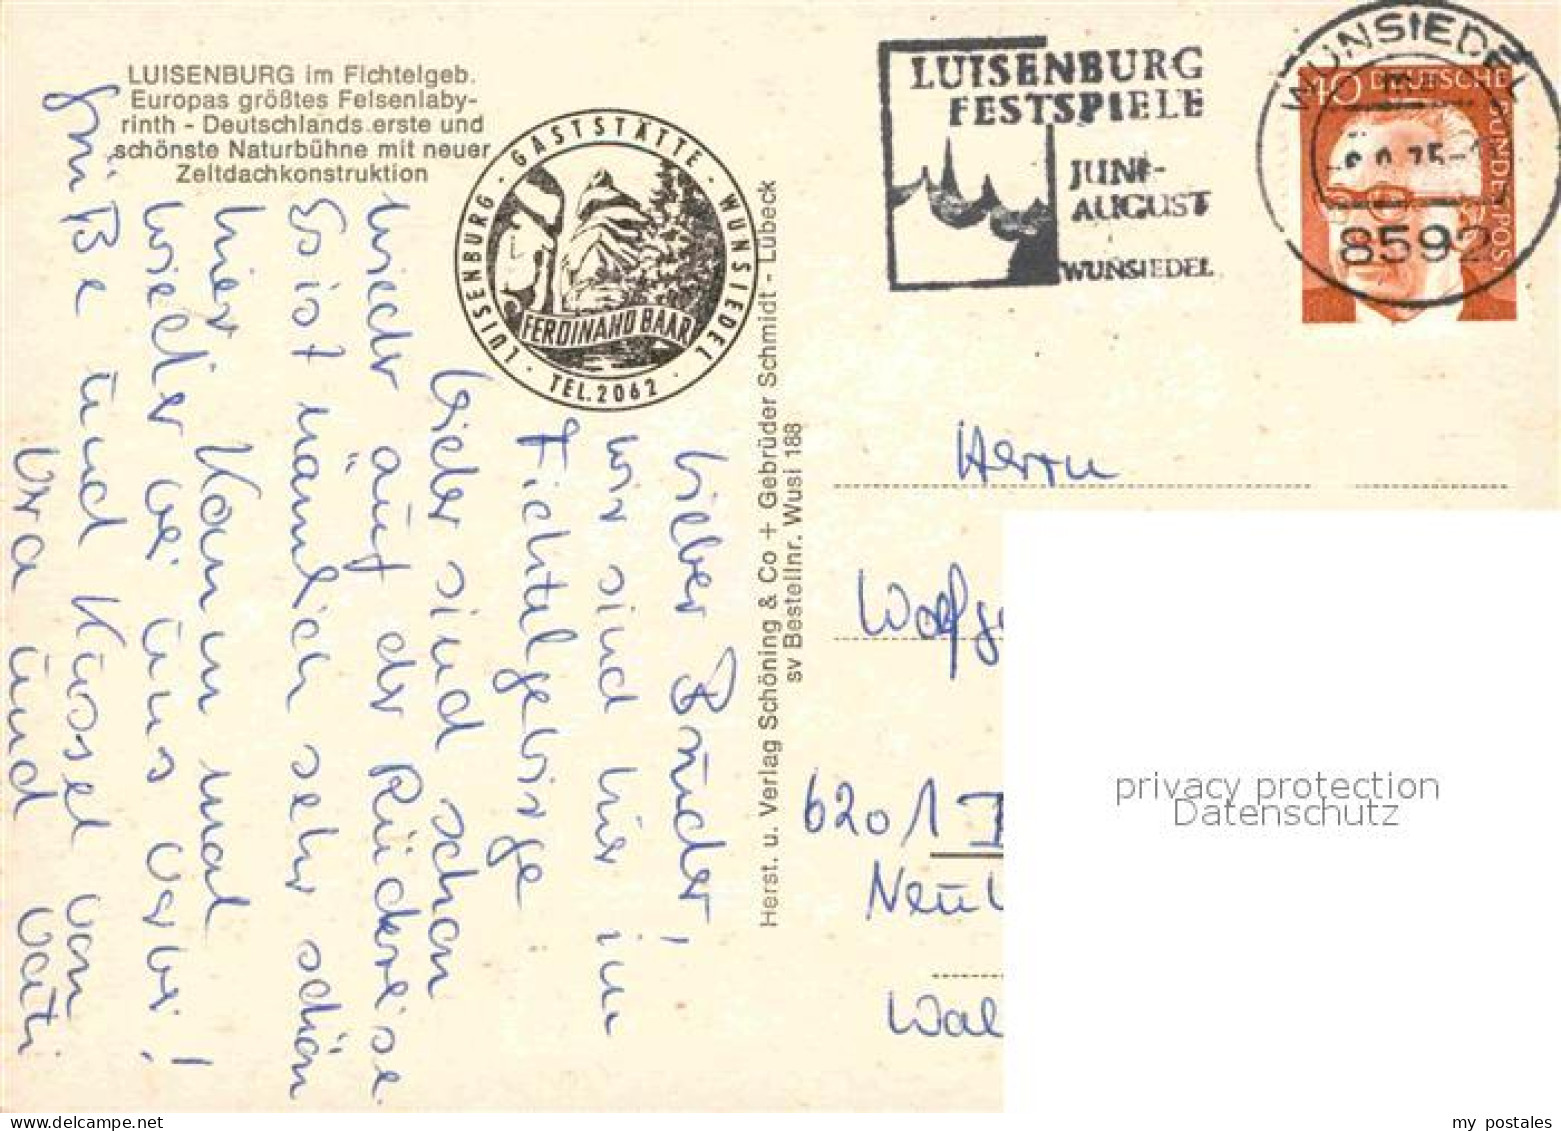 LUISENBURG im Fichtelgeb.
Europas größtes Felsenlaby-
rinth - Deutschlands erste und
schönste Naturbühne mit neuer
Zeltdachkonstruktion
LUISENBURG · GASTSTÄTTE · WUNSIEDEL
FERDINAND BAAR
· TEL. 2062 ·
Lieber Bruder!
wir sind hier im
Fichtelgebirge
leider sind schon
wieder auf der Rückreise.
Es ist nämlich sehr schön
hier Komm mal
wieder bei uns vorbei!
Grüße und Küssel von
und Vati
Herst. u. Verlag Schöning & Co + Gebrüder Schmidt - Lübeck
sv Bestellnr. Wusi 188
LUISENBURG
FESTSPIELE
JUNI-
AUGUST
WUNSIEDEL
WUNSIEDEL
8592
40 DEUTSCHE BUNDESPOST
Herrn
Wolfg
6201
Neu
Wal
privacy protection
Datenschutz
delcampe.net
my_postales